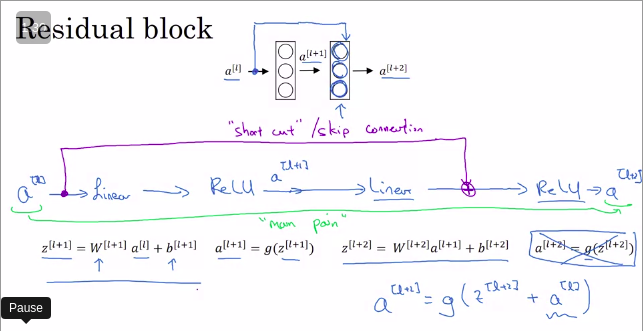 Residual block
a^[l] a^[l+1] a^[l+2]
"short cut" / skip connection
a^[l] → Linear → ReLU a^[l+1] → Linear → ReLU → a^[l+2]
"main path"
z^[l+1] = W^[l+1] a^[l] + b^[l+1] a^[l+1] = g(z^[l+1]) z^[l+2] = W^[l+2] a^[l+1] + b^[l+2] a^[l+2] = g(z^[l+2])
a^[l+2] = g(z^[l+2] + a^[l])
Pause